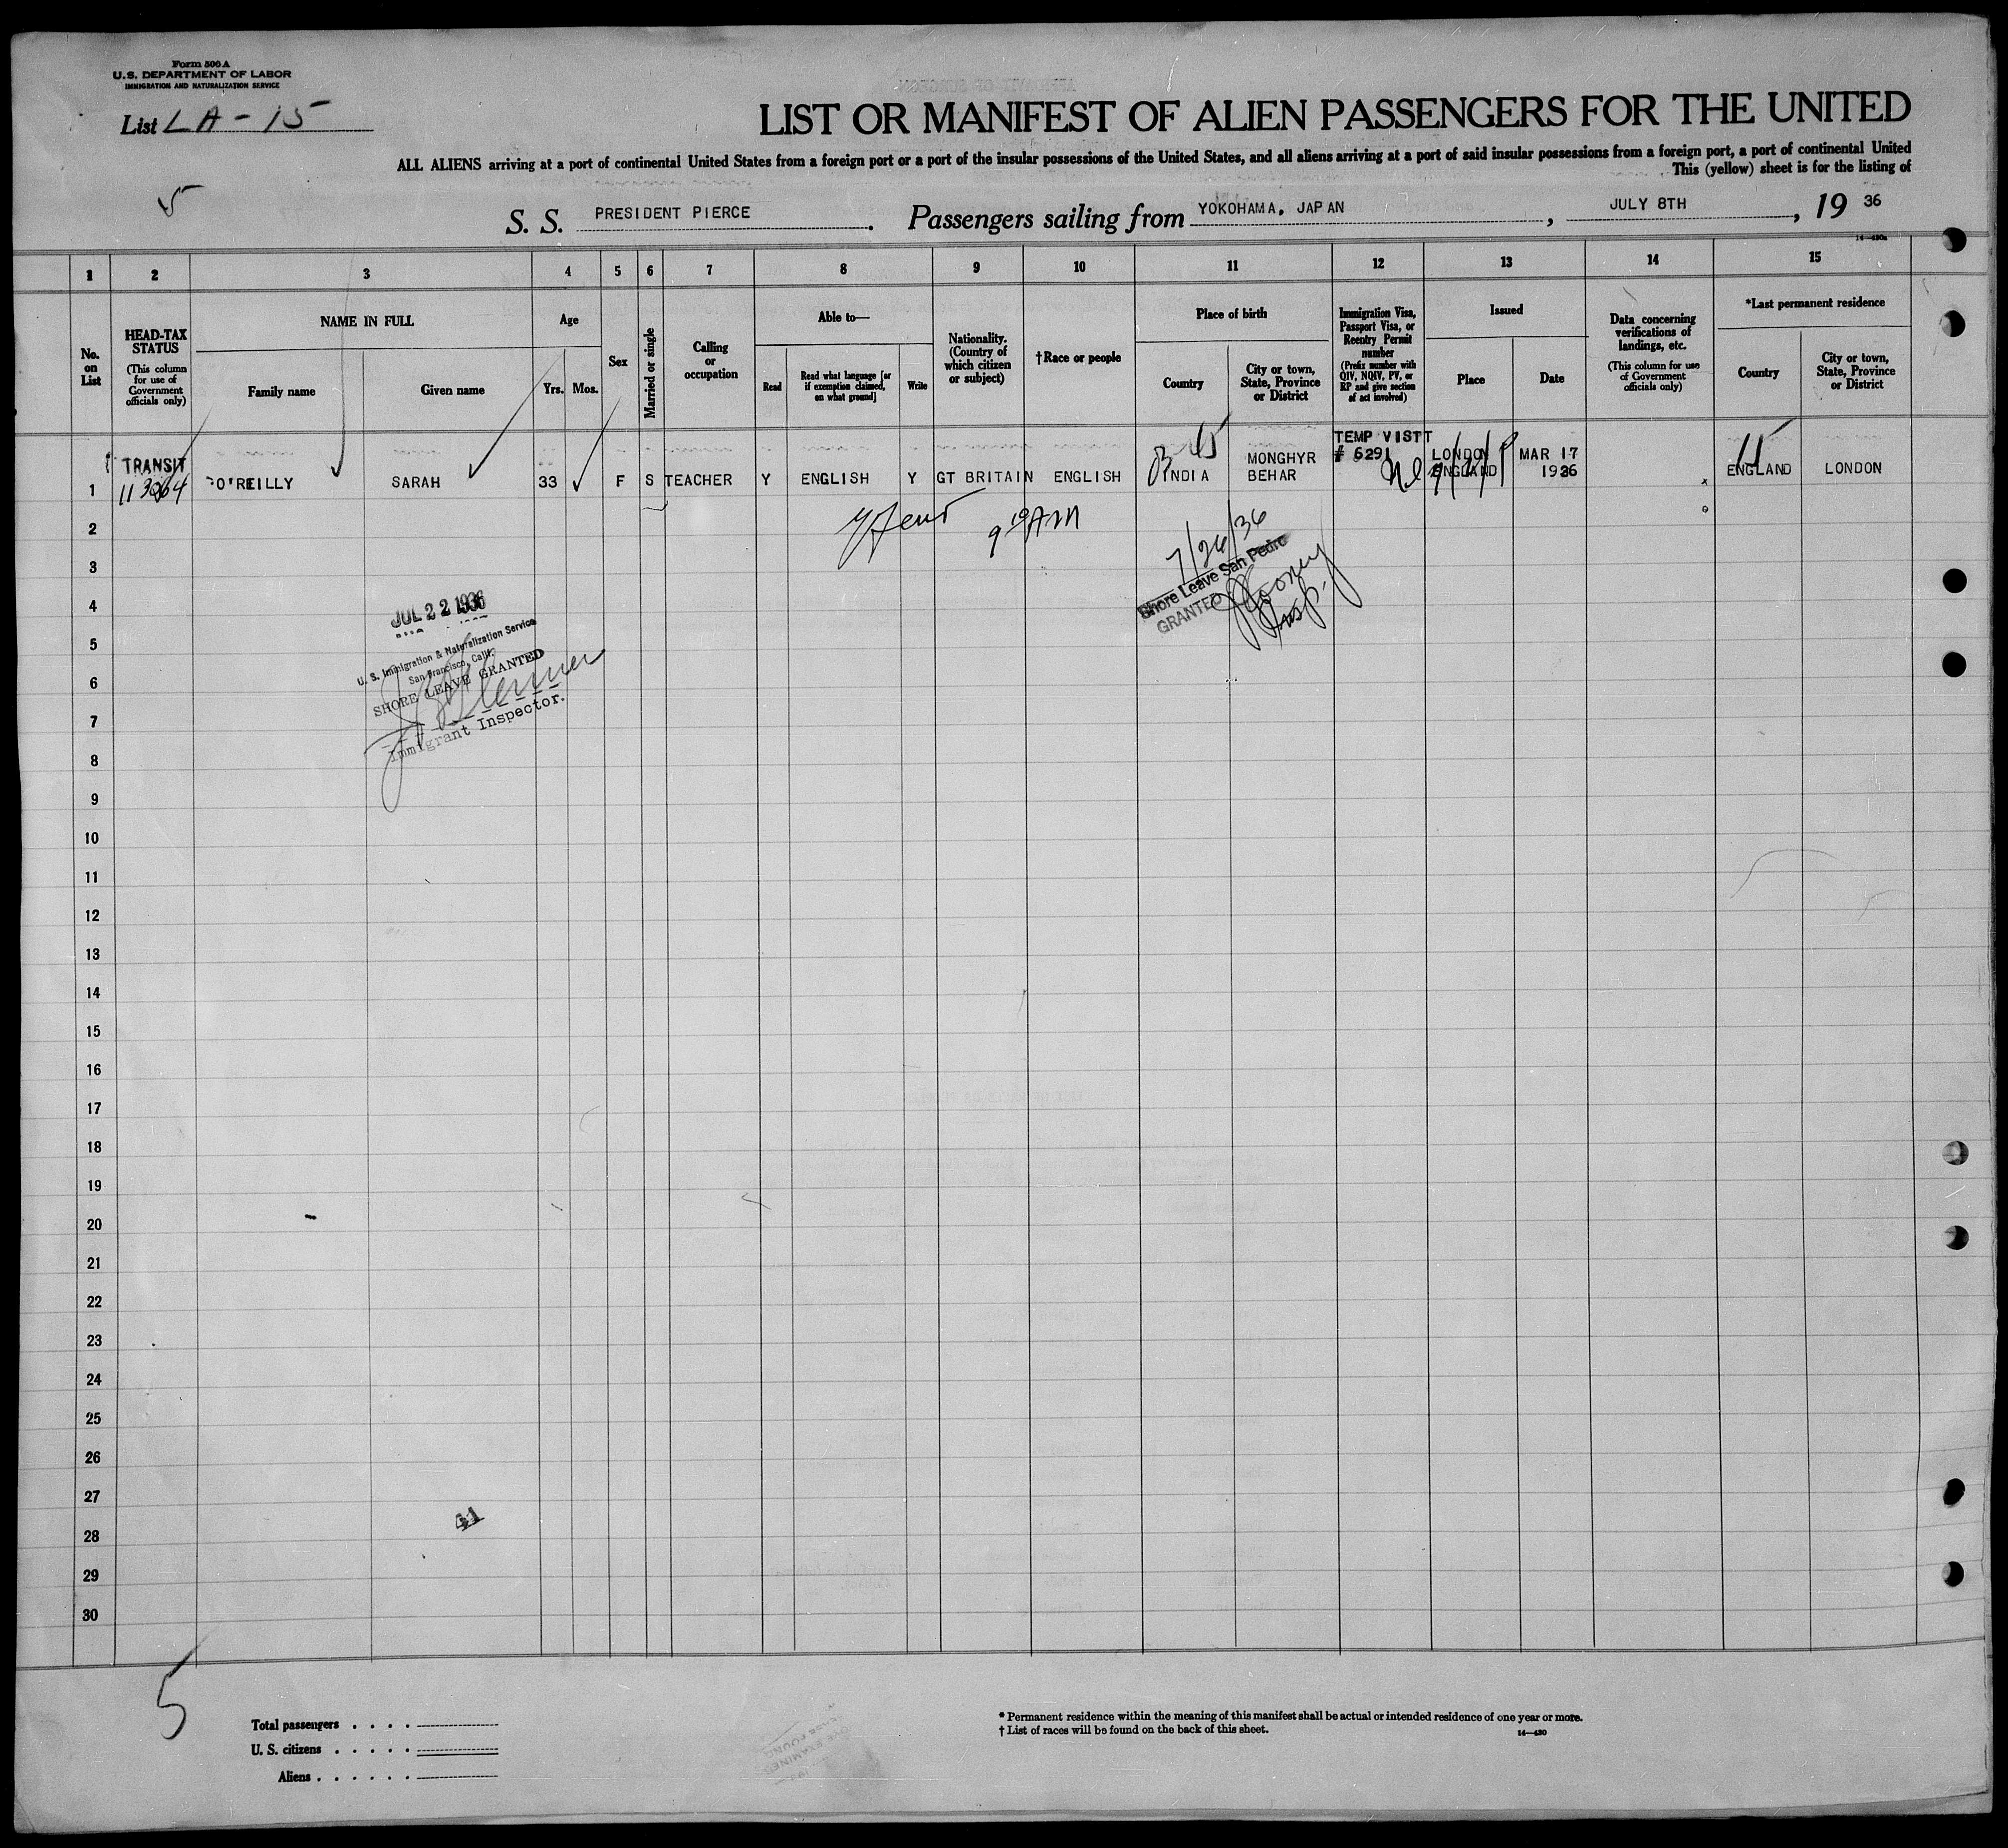 Form 500 A
U.S. DEPARTMENT OF LABOR
IMMIGRATION AND NATURALIZATION SERVICE
List LA-15
LIST OR MANIFEST OF ALIEN PASSENGERS FOR THE UNITED
ALL ALIENS arriving at a port of continental United States from a foreign port or a port of the insular possessions of the United States, and all aliens arriving at a port of said insular possessions from a foreign port, a port of continental United
This (yellow) sheet is for the listing of
5
S. S. PRESIDENT PIERCE. Passengers sailing from YOKOHAMA, JAPAN, JULY 8TH, 19 36
1 2 3 4 5 6 7 8 9 10 11 12 13 14 15
No. on List
HEAD-TAX STATUS
(This column for use of Government officials only)
NAME IN FULL
Family name
Given name
Age
Yrs. Mos.
Sex
Married or single
Calling or occupation
Able to—
Read
Read what language [or if exemption claimed, on what ground]
Write
Nationality. (Country of which citizen or subject)
†Race or people
Place of birth
Country
City or town, State, Province or District
Immigration Visa, Passport Visa, or Reentry Permit number
(Prefix number with QIV, NQIV, PV, or RP and give section of act involved)
Issued
Place
Date
Data concerning verifications of landings, etc.
(This column for use of Government officials only)
*Last permanent residence
Country
City or town, State, Province or District
1 TRANSIT O'REILLY SARAH 33 F S TEACHER Y ENGLISH Y GT BRITAIN ENGLISH INDIA MONGHYR BEHAR TEMP VISIT # 6291 LONDON ENGLAND MAR 17 1936 ENGLAND LONDON
15
15
9 10 AM
7/26/36
Shore Leave San Pedro
GRANTED
JUL 22 1936
U. S. Immigration & Naturalization Service
San Francisco, Calif.
SHORE LEAVE GRANTED
Immigrant Inspector.
2
3
4
5
6
7
8
9
10
11
12
13
14
15
16
17
18
19
20
21
22
23
24
25
26
27
28
29
30
5
Total passengers . . . .
U. S. citizens . . . . .
Aliens . . . . . .
* Permanent residence within the meaning of this manifest shall be actual or intended residence of one year or more.
† List of races will be found on the back of this sheet.
14—430